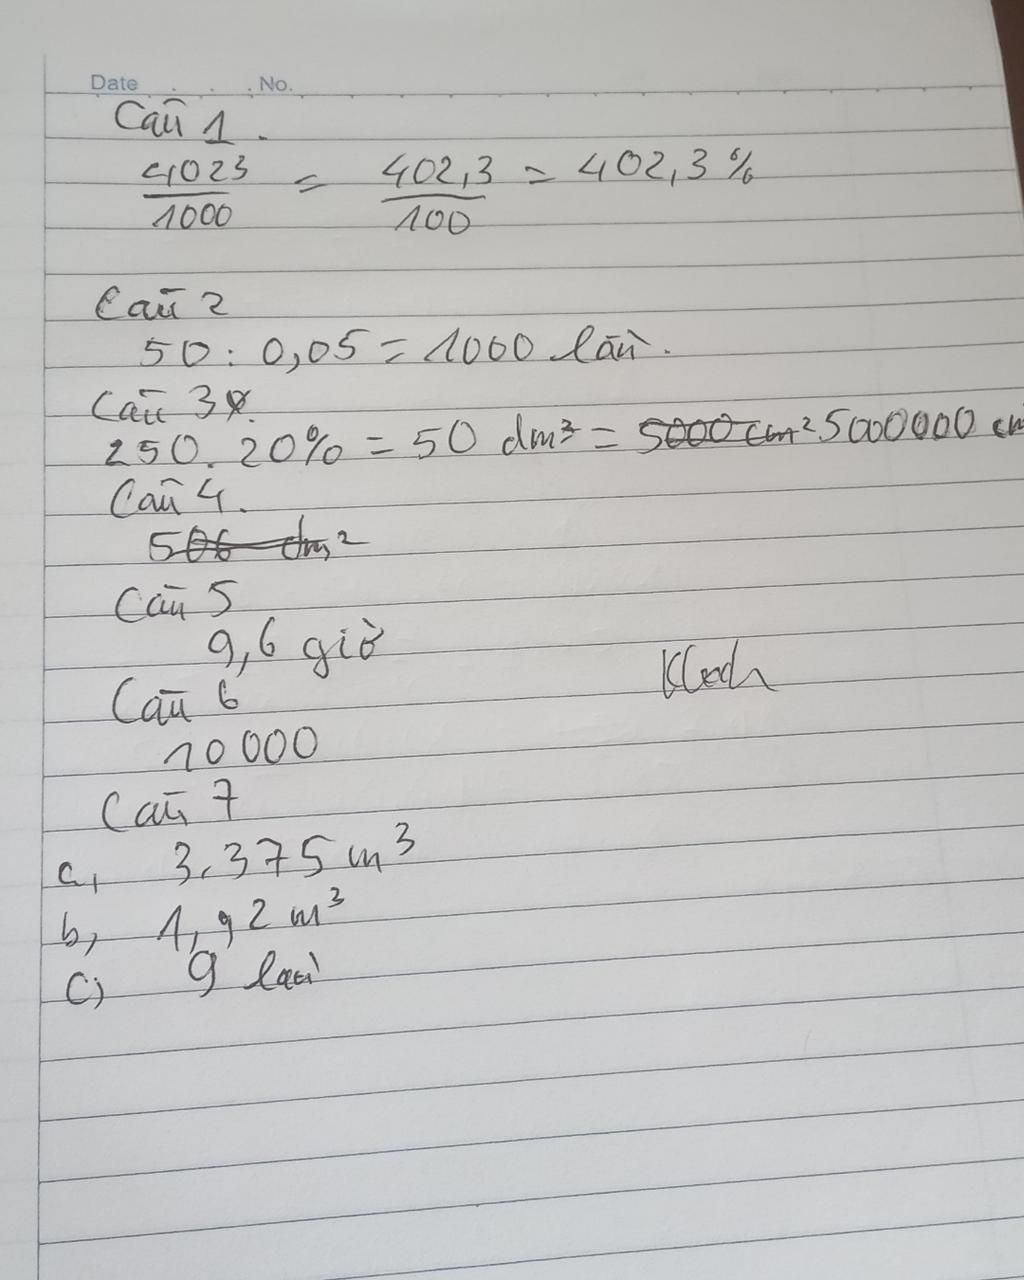 Date . . . No.
Câu 1.
4023/1000 = 402,3/100 = 402,3%
Câu 2
50 : 0,05 = 1000 lần.
Câu 3
250. 20% = 50 dm³ = 5000 cm² 5000000 cm
Câu 4.
506 dm²
Câu 5
9,6 giờ
Câu 6
10000
Câu 7
a, 3.375 m³
b, 1,92 m³
c) 9 lần